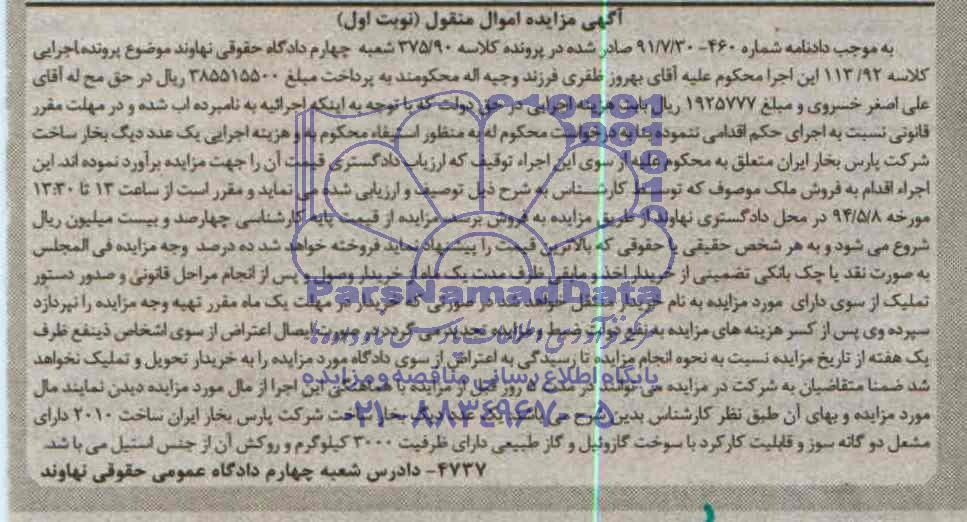 آگهی مزایده اموال منقول (نوبت اول)
به موجب دادنامه شماره ۴۶۰- ۹۱/۷/۳۰ صادر شده در پرونده کلاسه ۳۷۵/۹۰ شعبه چهارم دادگاه حقوقی نهاوند موضوع پرونده اجرایی
کلاسه ۱۱۳/۹۲ این اجرا محکوم علیه آقای بهروز ظفری فرزند وجیه اله محکومند به پرداخت مبلغ ۳۸۵۵۱۵۵۰۰ ریال در حق مح له آقای
علی اصغر خسروی و مبلغ ۱۹۲۵۷۷۷ ریال بابت هزینه اجرایی در حق دولت که با توجه به اینکه اجرائیه به نامبرده اب شده و در مهلت مقرر
قانونی نسبت به اجرای حکم اقدامی ننموده بنا به درخواست محکوم له به منظور استیفاء محکوم به و هزینه اجرایی یک عدد دیگ بخار ساخت
شرکت پارس بخار ایران متعلق به محکوم علیه از سوی این اجراء توقیف که ارزیاب دادگستری قیمت آن را جهت مزایده برآورد نموده اند. این
اجراء اقدام به فروش ملک موصوف که توسط کارشناس به شرح ذیل توصیف و ارزیابی شده می نماید و مقرر است از ساعت ۱۳ تا ۱۳:۳۰
مورخه ۹۴/۵/۸ در محل دادگستری نهاوند از طریق مزایده به فروش برسد. مزایده از قیمت پایه کارشناسی چهارصد و بیست میلیون ریال
شروع می شود و به هر شخص حقیقی یا حقوقی که بالاترین قیمت را پیشنهاد نماید فروخته خواهد شد ده درصد وجه مزایده فی المجلس
به صورت نقد یا چک بانکی تضمینی از خریدار اخذ و مابقی ظرف مدت یک ماه از خریدار وصول و پس از انجام مراحل قانونی و صدور دستور
تملیک از سوی دارای مورد مزایده به نام خریدار منتقل خواهد شد در صورتی که خریدار در مهلت یک ماه مقرر تهیه وجه مزایده را نپردازد
سپرده وی پس از کسر هزینه های مزایده به نفع دولت ضبط و مزایده تجدید می گردد در صورت ایصال اعتراض از سوی اشخاص ذینفع ظرف
یک هفته از تاریخ مزایده نسبت به نحوه انجام مزایده تا رسیدگی به اعتراض از سوی دادگاه مورد مزایده را به خریدار تحویل و تملیک نخواهد
شد ضمنا متقاضیان به شرکت در مزایده می توانند در مدت ۵ روز قبل از مزایده با هماهنگی این اجرا از مال مورد مزایده دیدن نمایند مال
مورد مزایده و بهای آن طبق نظر کارشناس بدین شرح می باشد: یک عدد دیگ بخار ساخت شرکت پارس بخار ایران ساخت ۲۰۱۰ دارای
مشعل دو گانه سوز و قابلیت کارکرد با سوخت گازوئیل و گاز طبیعی دارای ظرفیت ۳۰۰۰ کیلوگرم و روکش آن از جنس استیل می باشد.
۴۷۳۷- دادرس شعبه چهارم دادگاه عمومی حقوقی نهاوند
ParsNamadData
پایگاه اطلاع رسانی مناقصه و مزایده
۰۲۱-۸۸۳۴۹۶۷۰-۵